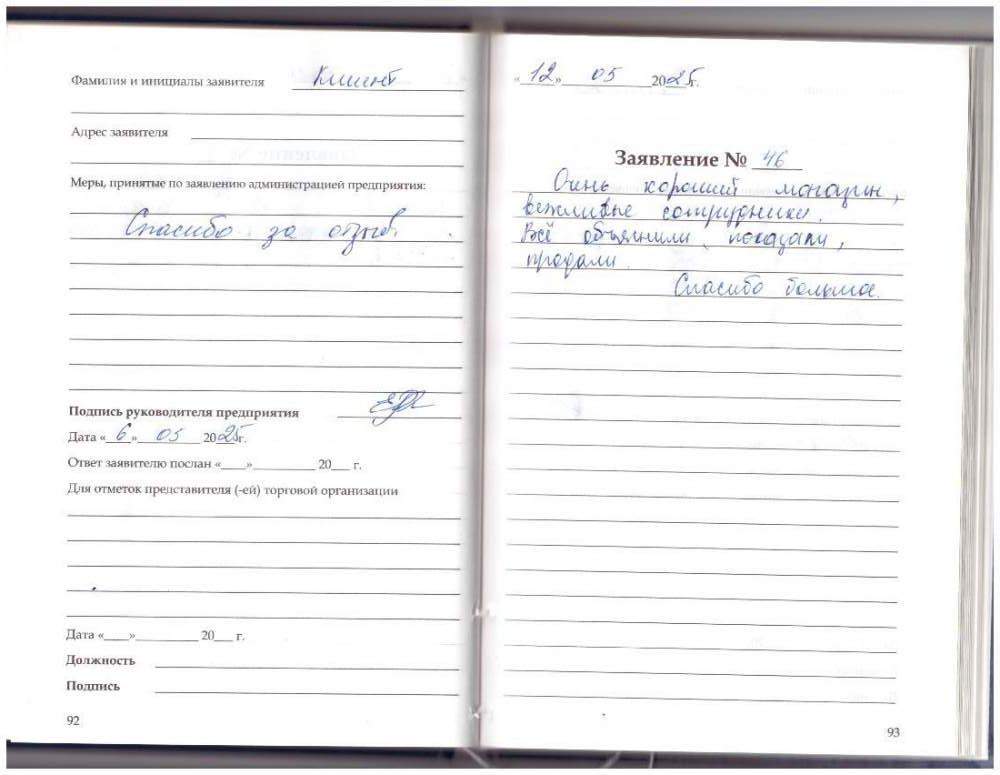 Фамилия и инициалы заявителя Клиент
Адрес заявителя
Меры, принятые по заявлению администрацией предприятия:
Спасибо за отзыв.
Подпись руководителя предприятия
Дата «6» 05 2025г.
Ответ заявителю послан «___»__________ 20___ г.
Для отметок представителя (-ей) торговой организации
Дата «____»__________ 20___ г.
Должность
Подпись
92
«12» 05 2025г.
Заявление № 46
Очень хороший магазин,
вежливые сотрудники.
Всё объяснили, показали,
продали.
Спасибо большое.
93